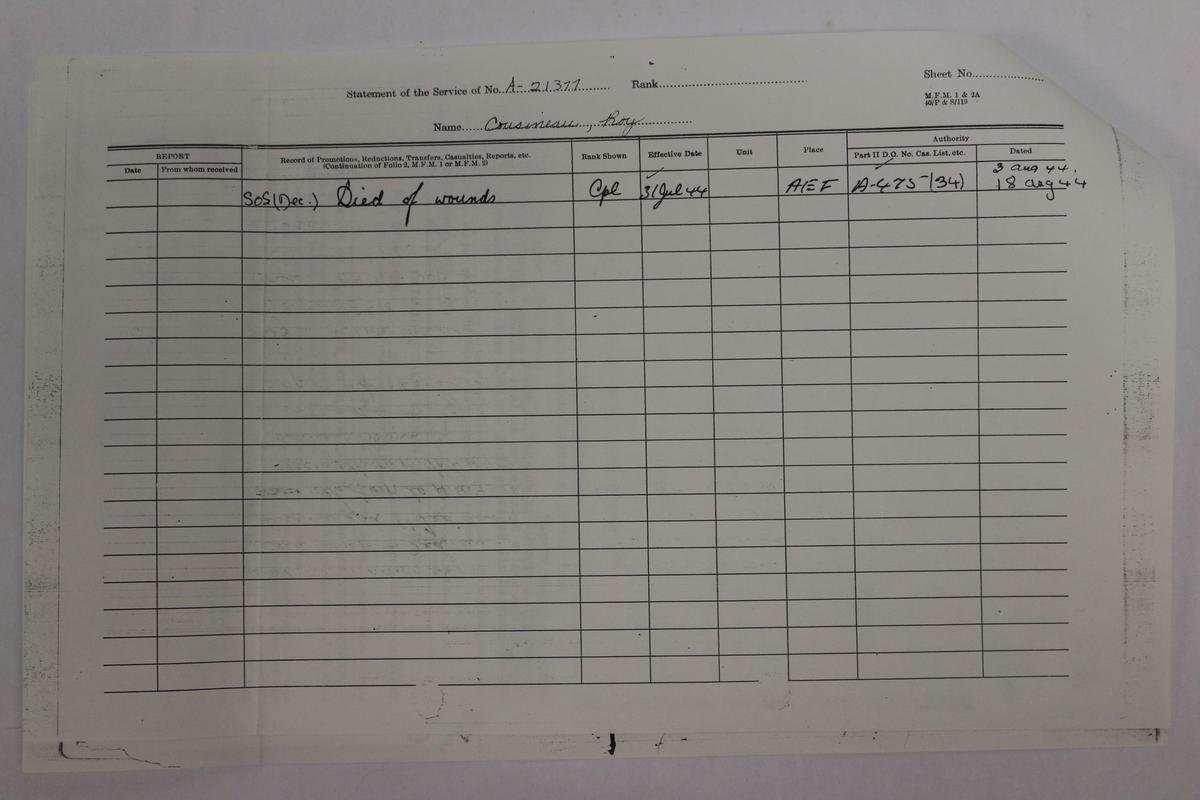 Sheet No.....................
Statement of the Service of No. A-21377.......... Rank.............................................
M.F.M. 1 & 2A
40/P & S/119
Name...... Cousineau, Roy................
REPORT
Record of Promotions, Reductions, Transfers, Casualties, Reports, etc.
(Continuation of Folio 2, M.F.M. 1 or M.F.M. 2)
Rank Shown
Effective Date
Unit
Place
Authority
Date
From whom received
Part II D.O. No. Cas. List, etc.
Dated
3 Aug 44.
SOS (Dec.) Died of wounds Cpl 31 Jul 44 AEF A-475 (34) 18 Aug 44